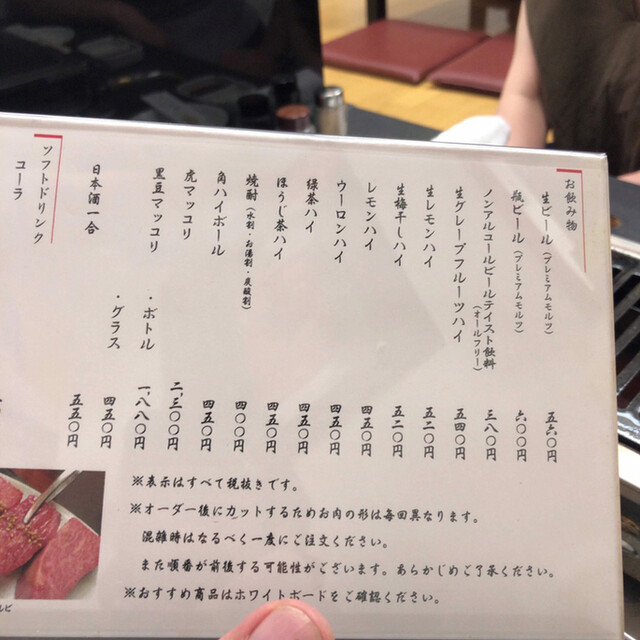 お飲み物
生ビール（プレミアムモルツ） 五六〇円
瓶ビール（プレミアムモルツ） 六〇〇円
ノンアルコールビールテイスト飲料（オールフリー） 三八〇円
生グレープフルーツハイ 五四〇円
生レモンハイ 五二〇円
生梅干しハイ 五二〇円
レモンハイ 四五〇円
ウーロンハイ 四五〇円
緑茶ハイ 四五〇円
ほうじ茶ハイ 四五〇円
焼酎（水割・お湯割・炭酸割） 四〇〇円
角ハイボール 四五〇円
虎マッコリ 二、三〇〇円
黒豆マッコリ ・ボトル 一、八八〇円
・グラス 四五〇円
日本酒一合 五五〇円
ソフトドリンク
コーラ
※表示はすべて税抜きです。
※オーダー後にカットするためお肉の形は毎回異なります。
混雑時はなるべく一度にご注文ください。
また順番が前後する可能性がございます。あらかじめご了承ください。
※おすすめ商品はホワイトボードをご確認ください。
ルビ